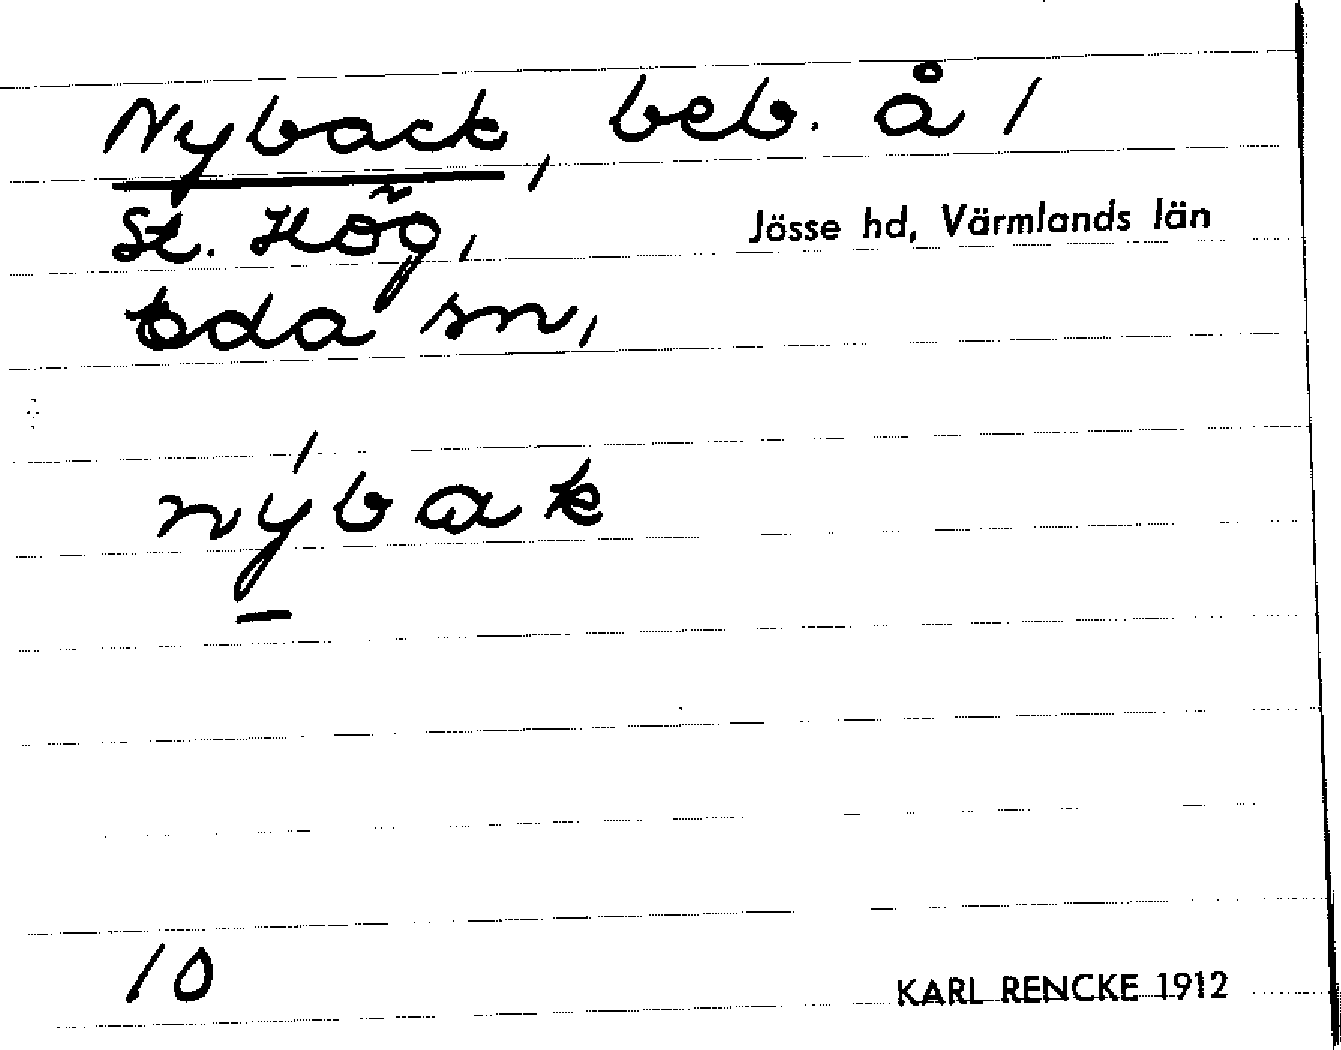 Nyback, beb. å /
St. Hög,
Jösse hd, Värmlands län
Eda sn,
nýbak
10
KARL RENCKE 1912